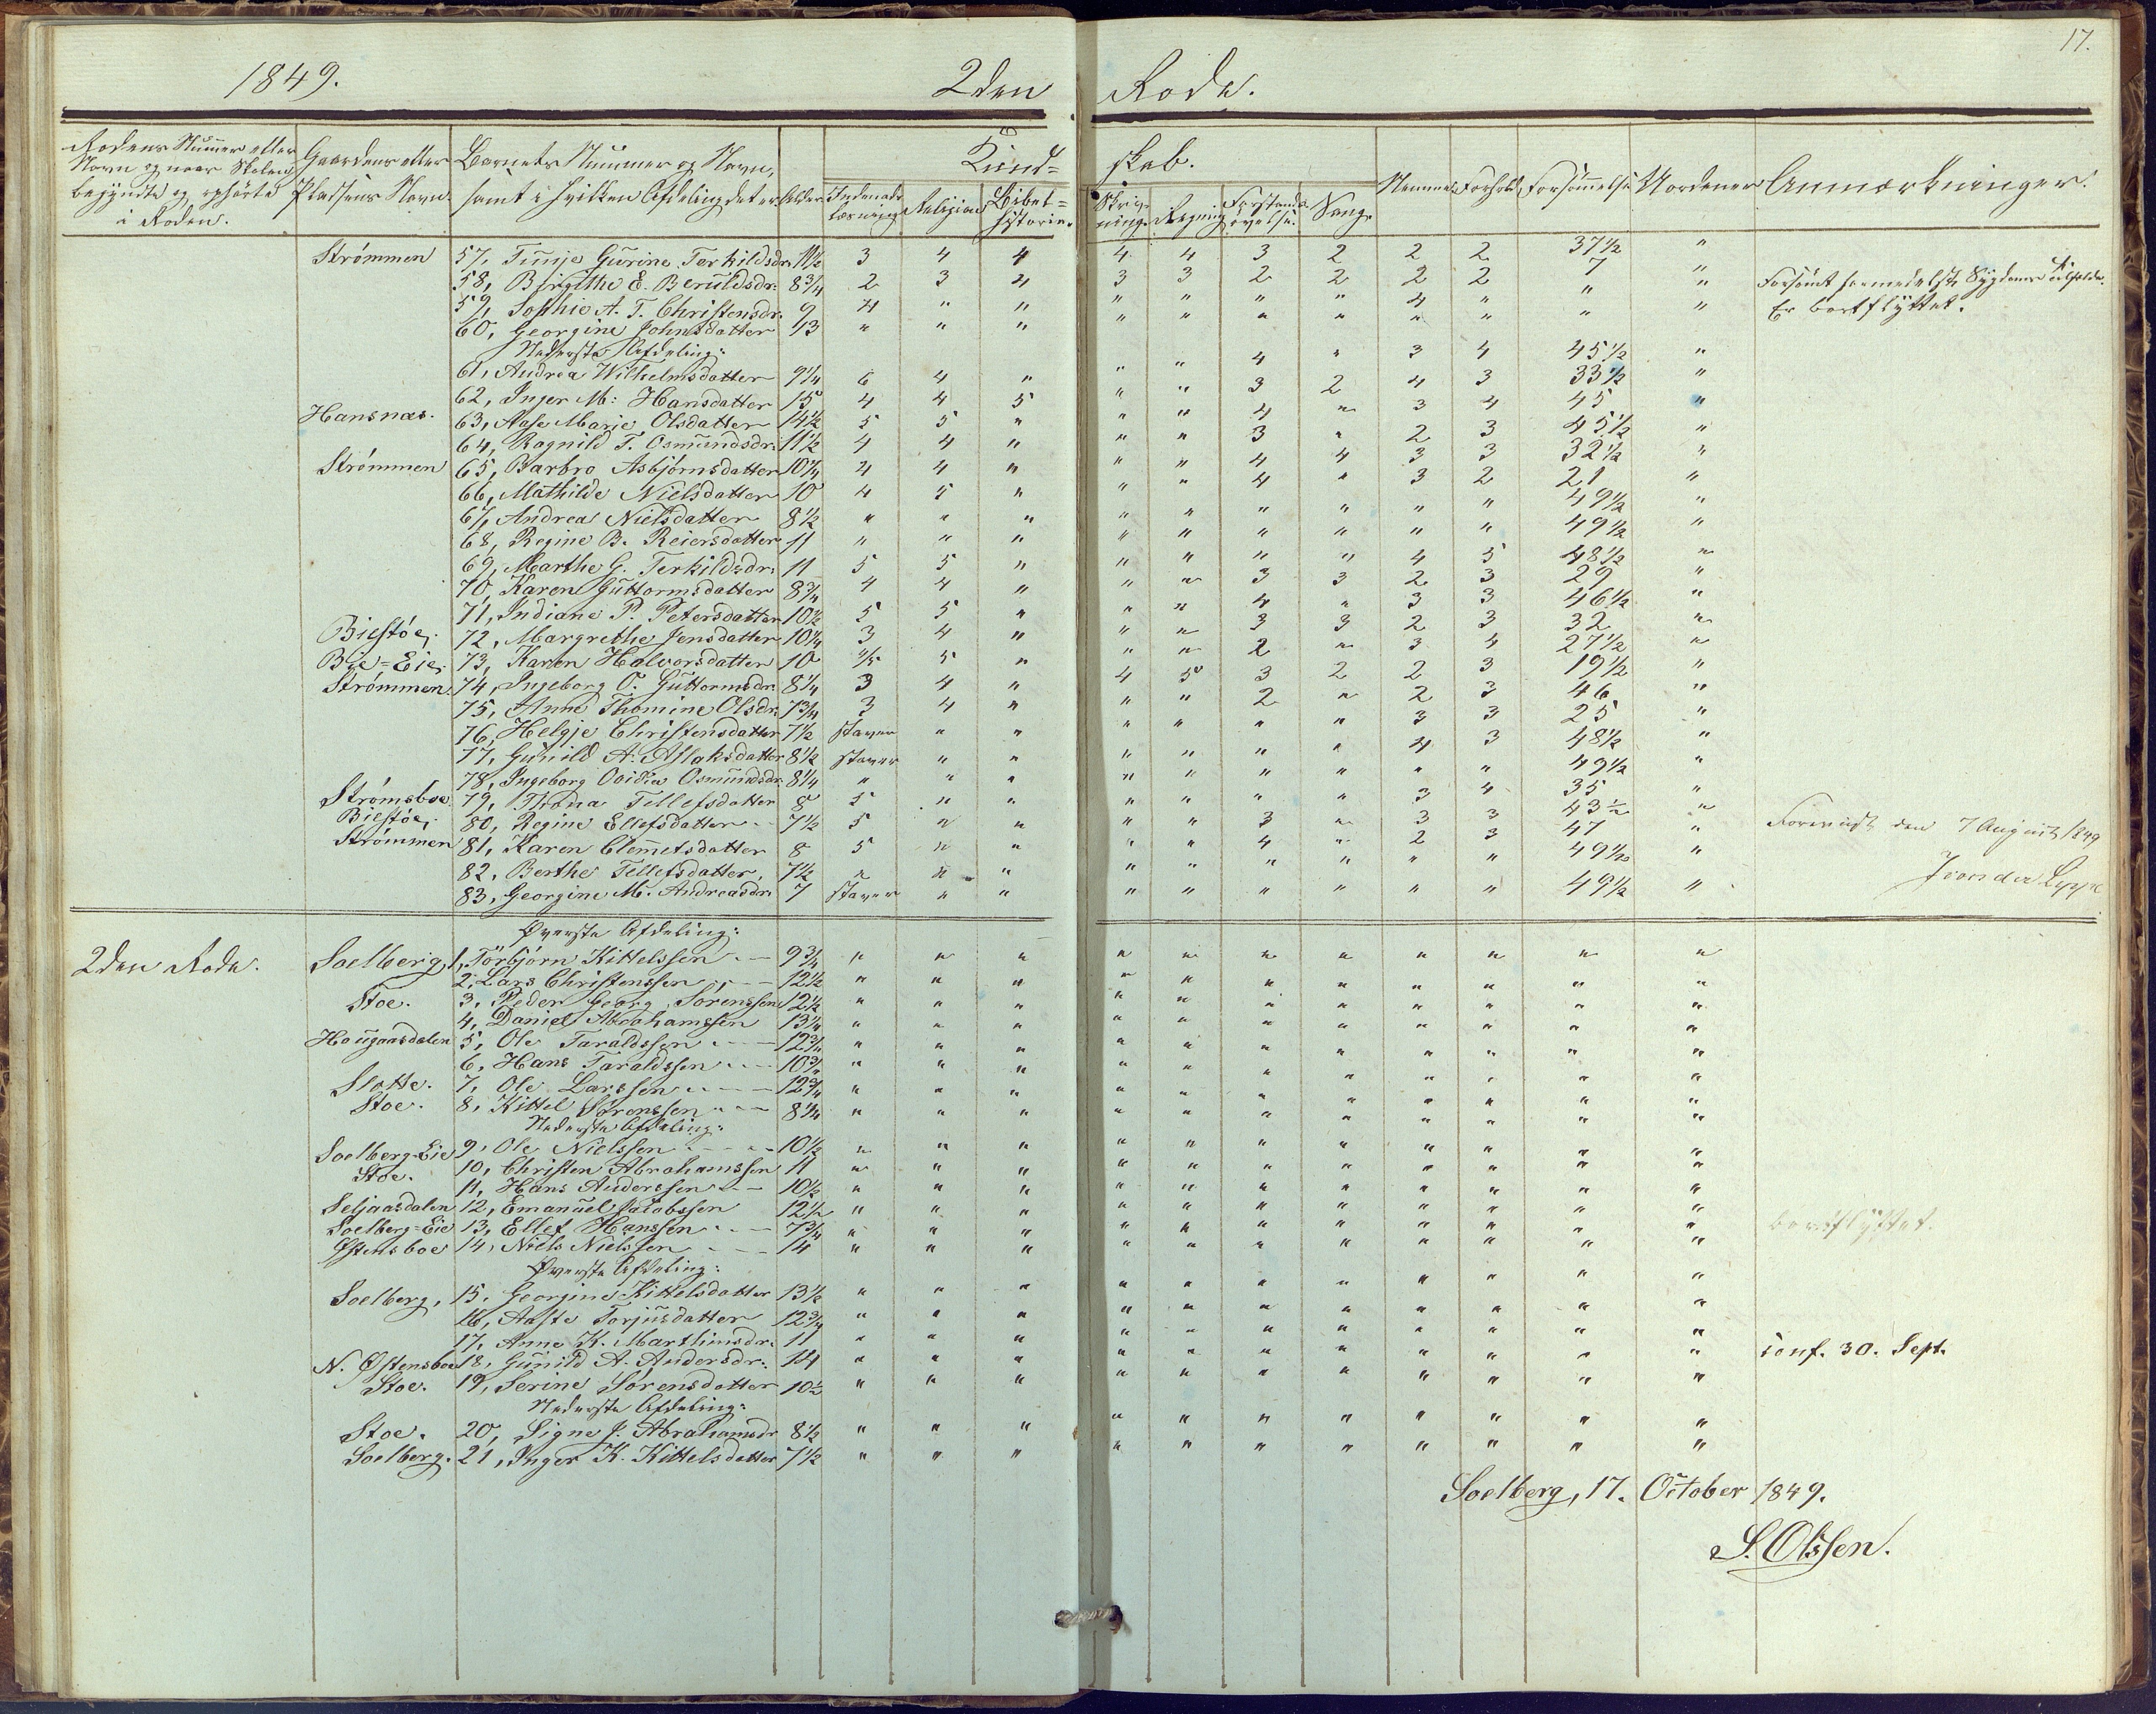 17.
1849. 2den Rode.
Rodens Nummer eller Navn og naar Skolen begyndte og ophørte i Roden. Gaardens eller Pladsens Navn. Barnets Nummer og Navn, samt i hvilken Afdeling det er. Alder. Kund- skab. Nemme. Forhold. Forsømmelse. Uordener. Anmærkninger.
Indenads læsning. Religion. Bibel= historie. Skriv- ning. Regning. Forstands øvelse. Sang.
Strømmen 57, Tumje Gurine Terkildsdr. 11½ 3 4 4 4 4 3 2 2 2 37½ "
58, Birgithe E. Beruldsdr: 8¾ 2 3 4 3 3 2 2 2 2 7 " Forsømt formedelst Sygdoms tilfælde.
59, Sophie A. T. Christensdr. 9 4 " " " " " " 4 " " " Er bortflyttet.
60, Georgine Johnsdatter 13 " " " " " " " " " " "
Nederste Afdeling:
61, Andrea Wilhelmsdatter 9¼ 6 4 " " " 4 " 3 4 45½ "
62, Inger M: Hansdatter 15 4 4 5 " " 3 2 4 3 33½ "
Hansnæs. 63, Aase Marie Olsdatter 14½ 5 5 " " " 4 " 3 4 45 "
64, Ragnild T. Osmundsdr: 11½ 4 4 " " " 3 " 2 3 45½ "
Strømmen 65, Barbro Asbjørnsdatter 10¼ 4 4 " " " 4 4 3 3 32½ "
66, Mathilde Nielsdatter 10 4 5 " " " 4 " 3 2 21 "
67, Andrea Nielsdatter 8½ " " " " " " " " " 49½ "
68, Regine B. Reiersdatter 11 " " " " " " " " " 49½ "
69, Marthe G. Terkildsdr. 11 5 5 " " " " " 4 5 48½ "
70, Karen Guttormsdatter 8¾ 4 4 " " " 3 3 2 3 29 "
71, Indiane P. Petersdatter 10½ 5 5 " " " 4 " 3 3 46½ "
Biestøe, 72, Margrethe Jensdatter 10¼ 3 4 " " " 3 3 2 3 32 "
Bie=Eie, 73, Karen Halvorsdatter 10 4/5 5 " " " 2 " 3 4 27½ "
Strømmen. 74, Ingeborg O. Guttormsdr. 8¼ 3 4 " 4 5 3 2 2 3 19½ "
75, Anne Thomine Olsdr. 7¾ 3 4 " " " 2 " 2 3 46 "
76, Helgje Christensdatter 7½ staver " " " " " " 3 3 25 "
77, Gunild A. Aslaksdatter 8½ staver " " " " " " 4 3 48½ "
78, Ingeborg Ovidia Osmundsdr. 8¼ " " " " " " " " " 49½ "
Strømsboe. 79, Throna Tellefsdatter 8 5 " " " " " " 3 4 35 "
Biestøe, 80, Regine Ellefsdatter 7½ 5 " " " " 3 " 3 3 43½ "
Strømmen 81, Karen Clemetsdatter 8 5 " " " " 4 " 2 3 47 " Foreviist den 7 August 1849
82, Berthe Tellefsdatter, 7½ " " " " " " " " " 49½ "
83, Georgine M. Andreasdr. 7 staver " " " " " " " " 49½ "
Øverste Afdeling:
2den Rode. Soelberg, 1, Torbjørn Kittelssen 9¾ " " " " " " " " " " "
2, Lars Christenssen 12½ " " " " " " " " " " "
Stoe. 3, Peder Georg Sørenssen 12½ " " " " " " " " " " "
4, Daniel Abrahamssen 13¼ " " " " " " " " " " "
Hougaasdalen 5, Ole Taraldssen 12¾ " " " " " " " " " " "
6, Hans Taraldssen 10¾ " " " " " " " " " " "
Slotte. 7, Ole Larssen 12¾ " " " " " " " " " " "
Stoe. 8, Kittel Sørenssen 8¼ " " " " " " " " " " "
Nederste Afdeling:
Soelberg-Eie 9, Ole Nielssen 10½ " " " " " " " " " " "
Stoe. 10, Christen Abrahamssen 11 " " " " " " " " " " "
11, Hans Anderssen 10½ " " " " " " " " " " "
Seljaasdalen 12, Emanuel Jacobssen 12½ " " " " " " " " " " "
Soelberg=Eie 13, Ellef Hanssen 7¾ " " " " " " " " " " " bortflyttet.
Østensboe 14, Niels Nielssen 14 " " " " " " " " " " "
Øverste Afdeling:
Soelberg, 15, Georgine Kittelsdatter 13½ " " " " " " " " " " "
16, Aaste Torjusdatter 12¾ " " " " " " " " " " "
17, Anne K. Marthinsdr. 11 " " " " " " " " " " "
N. Østensboe 18, Gunild A. Andersdr: 14 " " " " " " " " " " " conf. 30. Sept.
Stoe. 19, Serine Sørensdatter 10½ " " " " " " " " " " "
Nederste Afdeling:
Stoe. 20, Signe J. Abrahamsdr 8½ " " " " " " " " " " "
Soelberg. 21, Inger K. Kittelsdatter 7½ " " " " " " " " " " "
Soelberg, 17. October 1849.
S. Olssen.